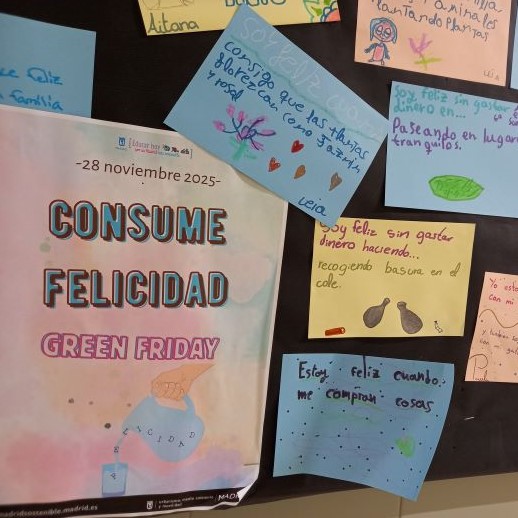 Aitana
ce feliz
a familia
-28 noviembre 2025-
CONSUME
FELICIDAD
GREEN FRIDAY
FELICIDAD
madridsostenible.madrid.es
Soy feliz cuando
consigo que las plantas
florezcan como Jazmín
y rosal
Leia
animales
Plantando Plantas
Lia
Soy feliz sin gastar
dinero en...
Paseando en lugar
tranquilos.
Soy feliz sin gastar
dinero haciendo...
recogiendo basura en el
cale.
Estoy feliz cuando
me compran cosas
Yo este
con mi